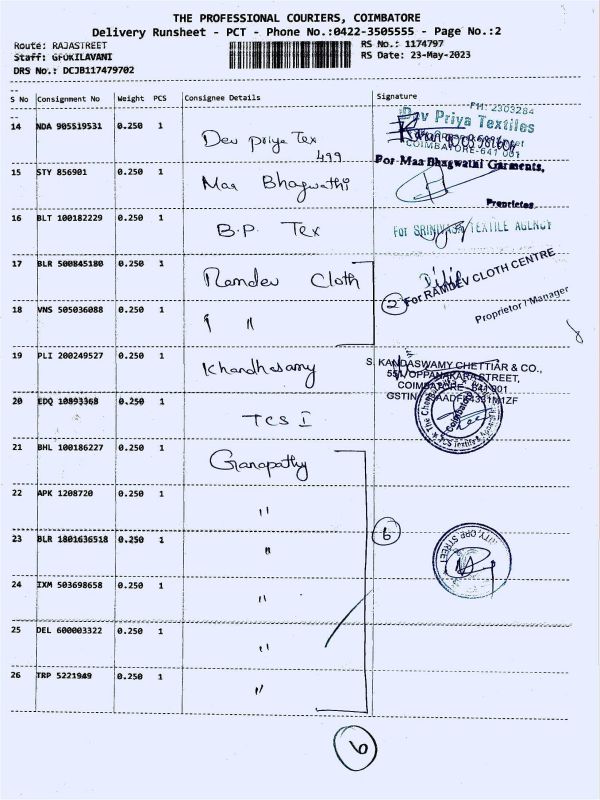 THE PROFESSIONAL COURIERS, COIMBATORE
Delivery Runsheet - PCT - Phone No.:0422-3505555 - Page No.:2
Route: RAJASTREET RS No.: 1174797
Staff: GFOKILAVANI RS Date: 23-May-2023
DRS No.: DCJB117479702
S No Consignment No Weight PCS Consignee Details Signature
PH: 2303284
14 NDA 905519531 0.250 1 Dev Priya Tex Dev Priya Textiles
499 COIMBATORE-641 001
15 STY 856901 0.250 1 Maa Bhagwathi For Maa Bhagwathi Garments,
Proprietor
16 BLT 100182229 0.250 1 B.P. Tex For SRINIVASA TEXTILE AGENCY
17 BLR 500845180 0.250 1 Ramdev Cloth For RAMDEV CLOTH CENTRE
2 Proprietor / Manager
18 VNS 505036088 0.250 1 "
19 PLI 200249527 0.250 1 Khandhasamy S. KANDASWAMY CHETTIAR & CO.,
551, OPPANAKARA STREET,
COIMBATORE - 641 001
20 EDQ 10893368 0.250 1 TCS I
21 BHL 100186227 0.250 1 Ganapathy
22 APK 1208720 0.250 1 "
23 BLR 1801636518 0.250 1 " 6
24 IXM 503698658 0.250 1 "
25 DEL 600003322 0.250 1 "
26 TRP 5221949 0.250 1 "
6